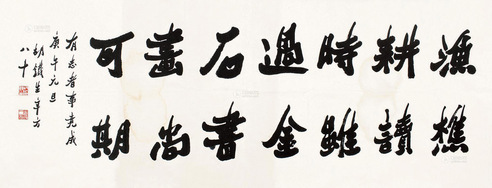 漁樵
耕讀
時雖
過金
石書
畫尚
可期
有志者事竟成
庚午元旦
胡鐵生年方
八十